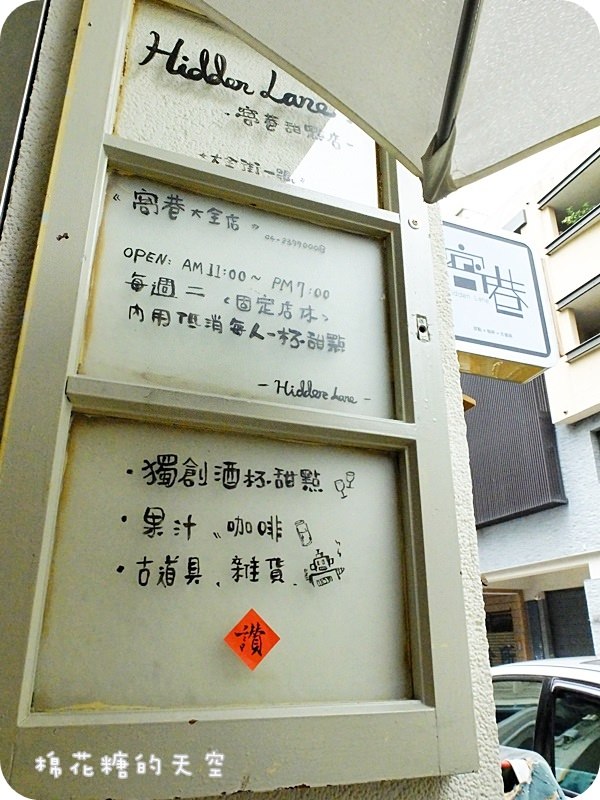 Hidden Lane
·窩巷甜點店-
*大全街一號*
《窩巷大全店》
04-23990008
OPEN: AM 11:00~ PM 7:00
每週二 <固定店休>
內用低消每人一杯甜點
- Hidden Lane -
·獨創酒杯甜點
·果汁、咖啡
·古道具、雜貨、
讚
窩巷
hidden lane
棉花糖的天空